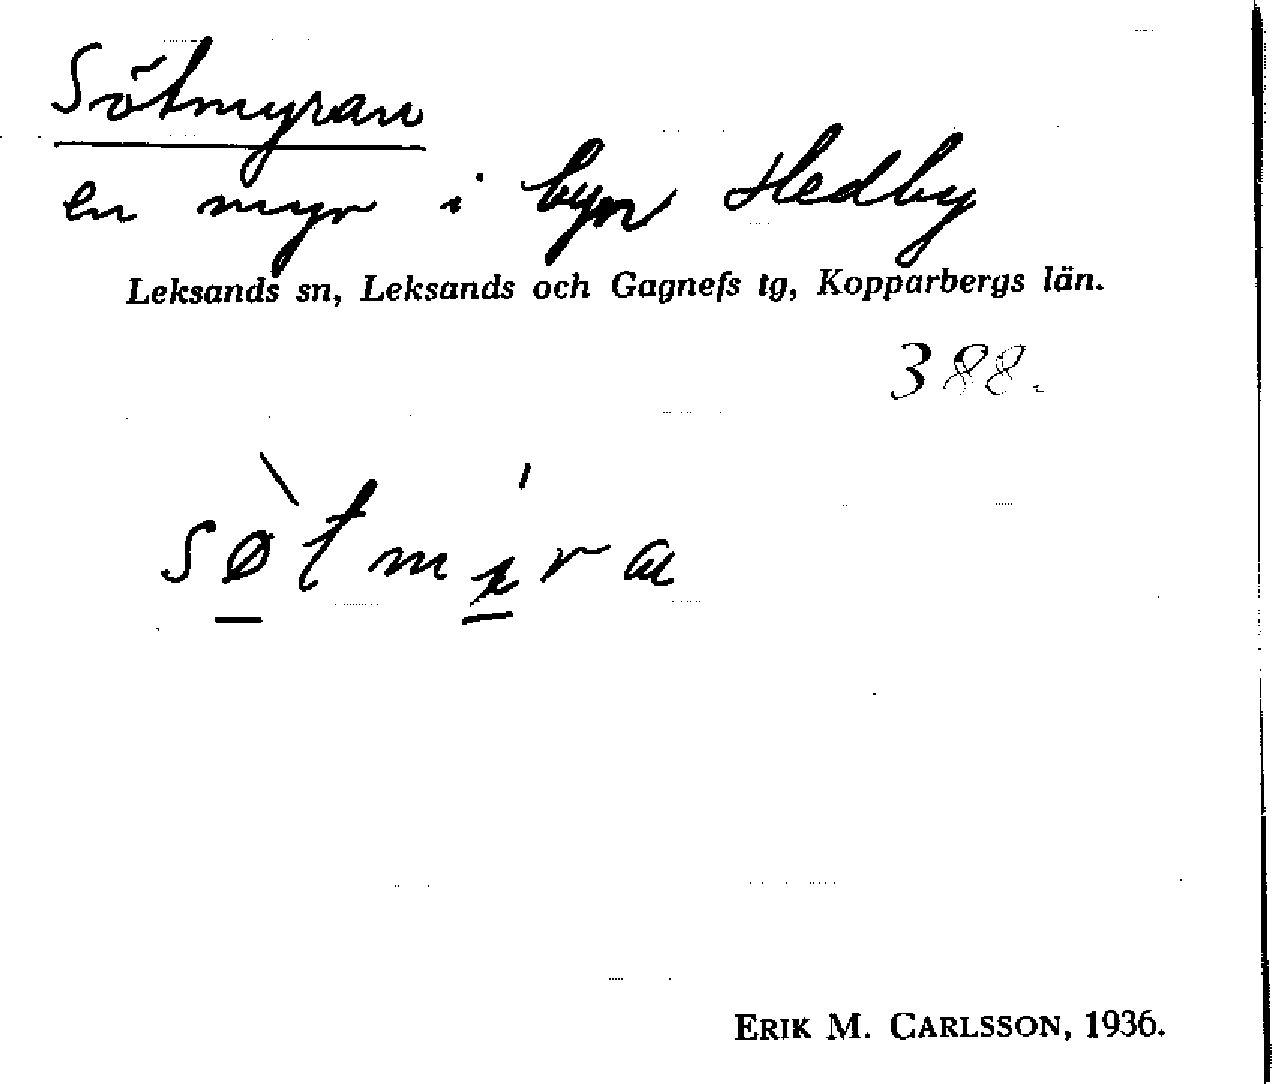 Sötmyran
en myr i byn Hedby
Leksands sn, Leksands och Gagnefs tg, Kopparbergs län.
388.
ERIK M. CARLSSON, 1936.